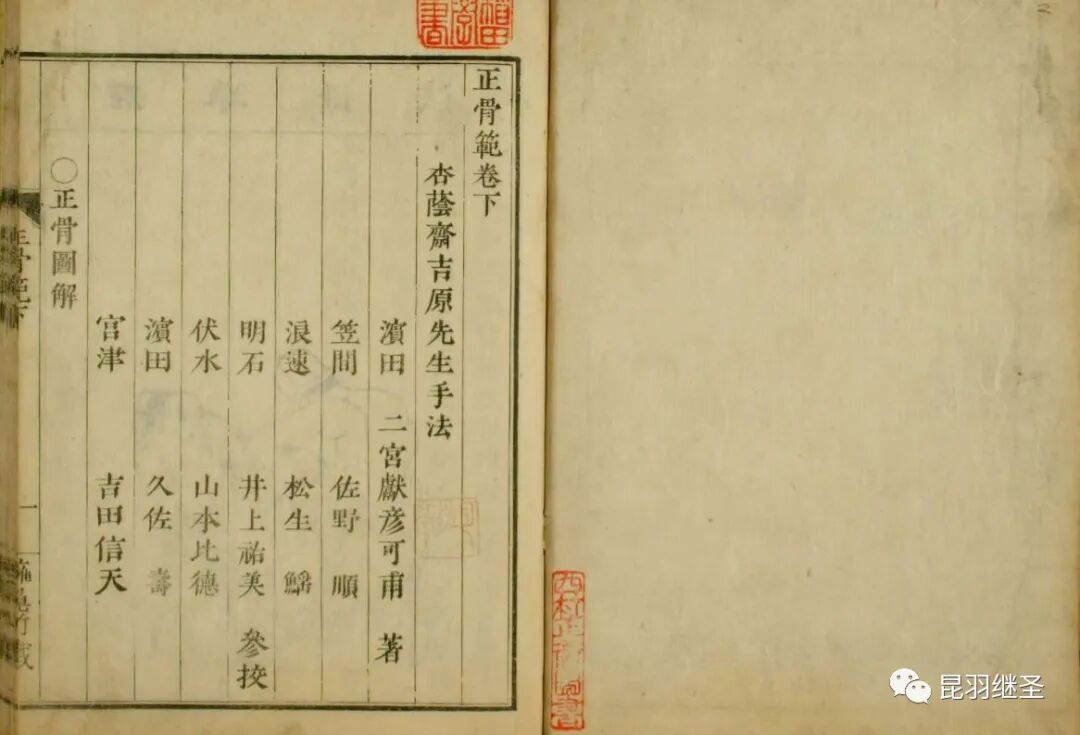 正骨範卷下
杏蔭齋吉原先生手法
濱田 二宮獻彦可甫 著
笠間 佐野 順
浪速 松生 鰩
明石 井上祐美 參挍
伏水 山本比德
濱田 久佐 壽
宮津 吉田信天
○正骨圖解
正骨範下
一
昆羽继圣